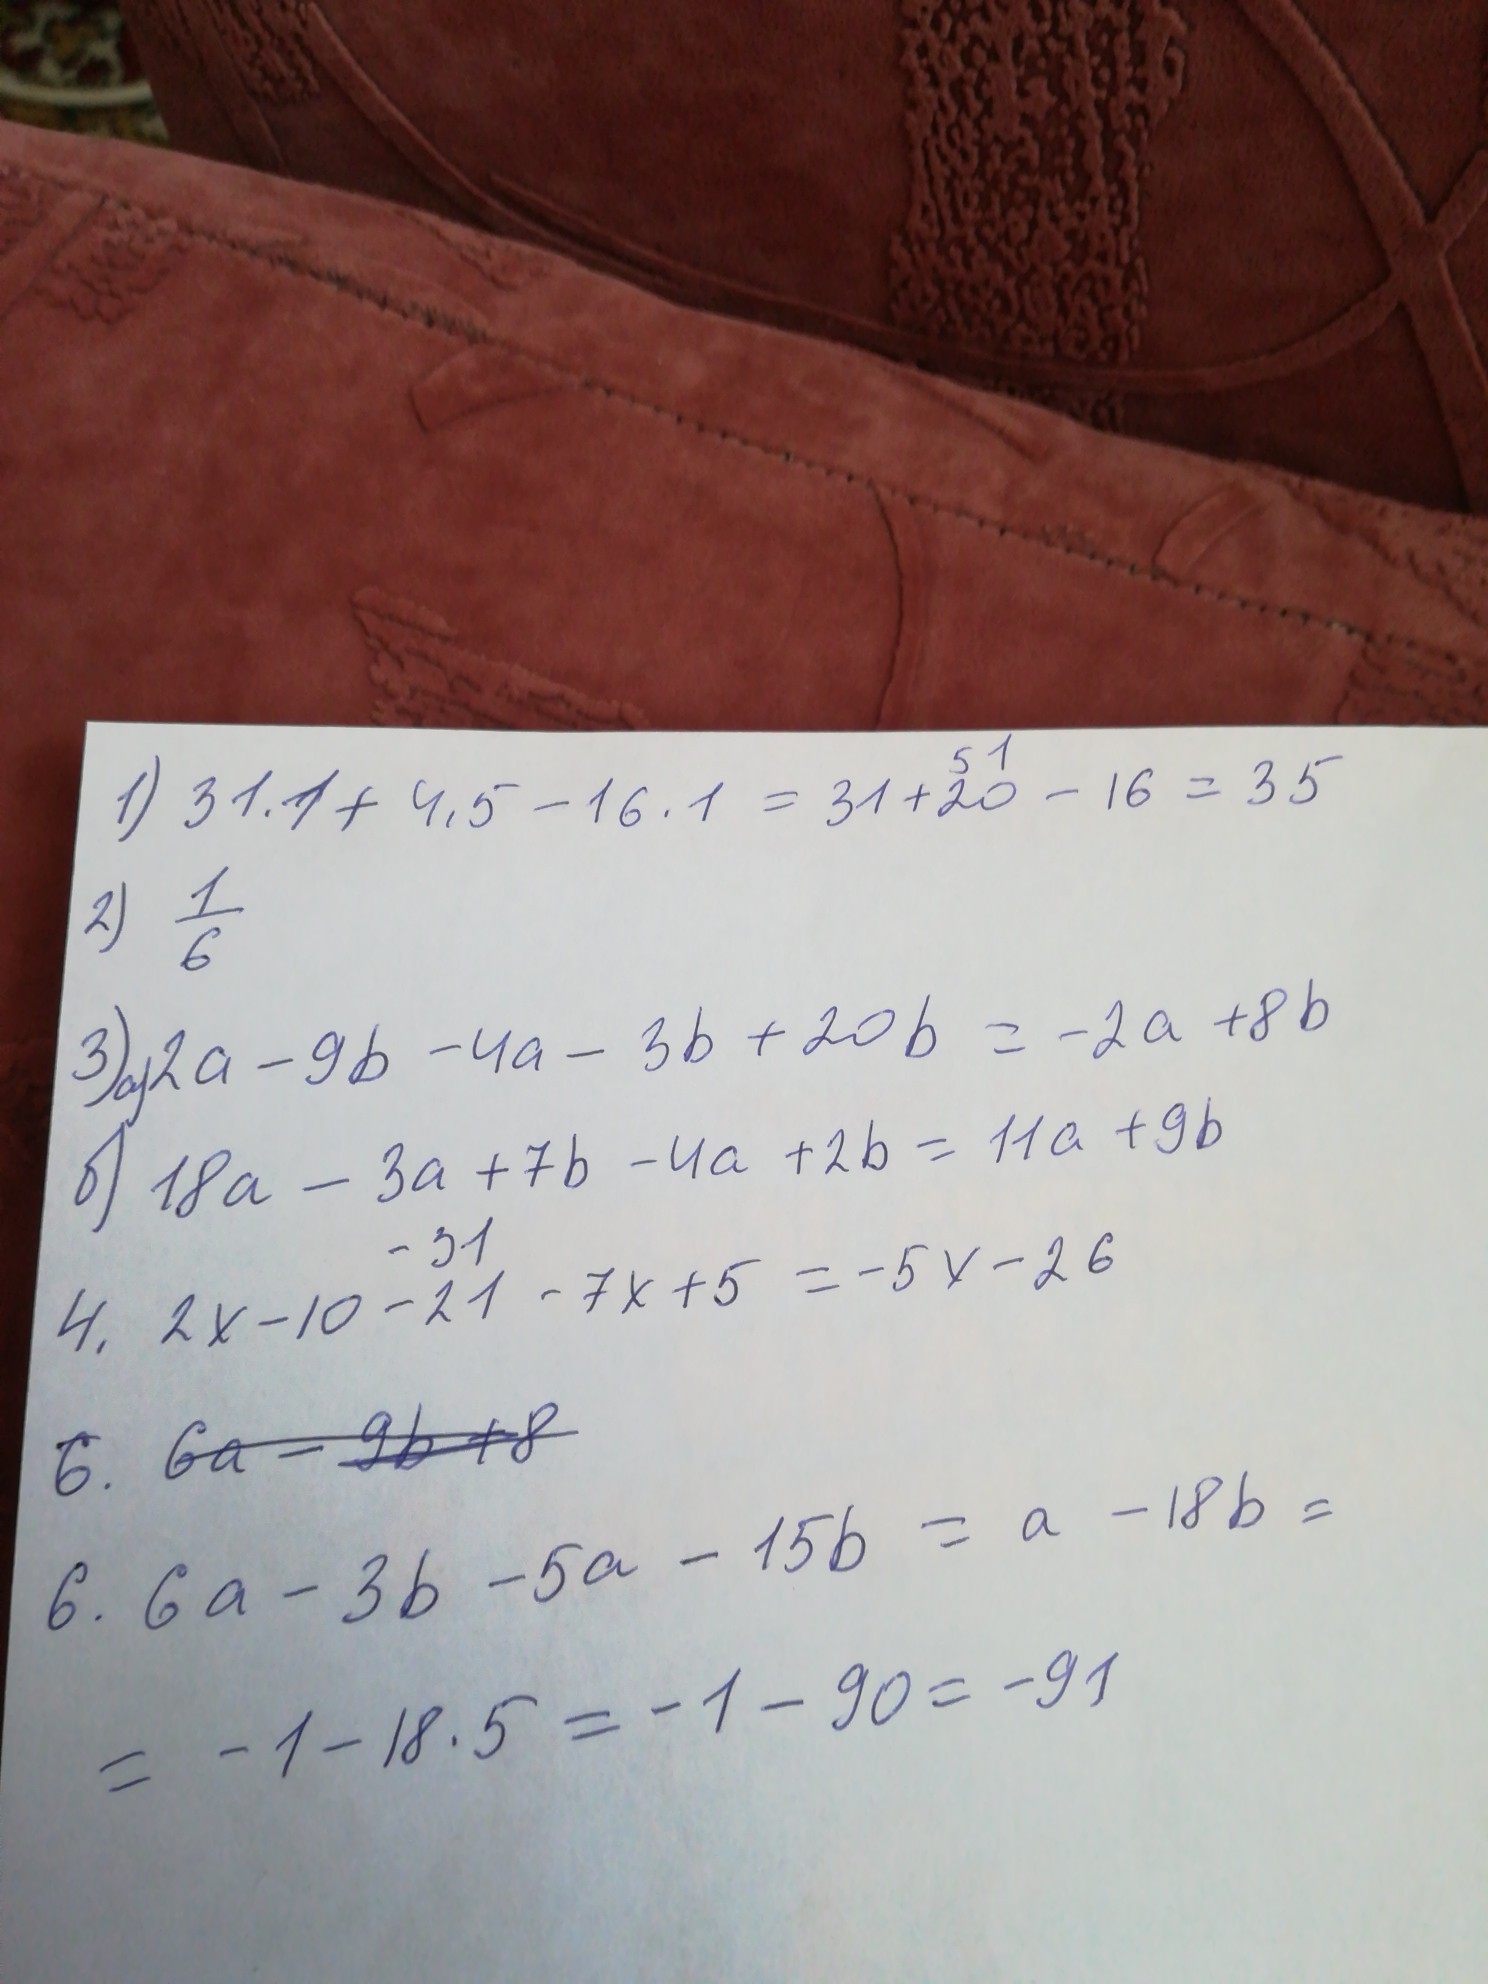 51
1) 31.1 + 4.5 - 16.1 = 31 + 20 - 16 = 35
2) 1/6
3) а) 2a - 9b - 4a - 3b + 20b = -2a + 8b
б) 18a - 3a + 7b - 4a + 2b = 11a + 9b
-31
4. 2x - 10 - 21 - 7x + 5 = -5x - 26
6. 6a - 9b + 8
6. 6a - 3b - 5a - 15b = a - 18b =
= -1 - 18.5 = -1 - 90 = -91